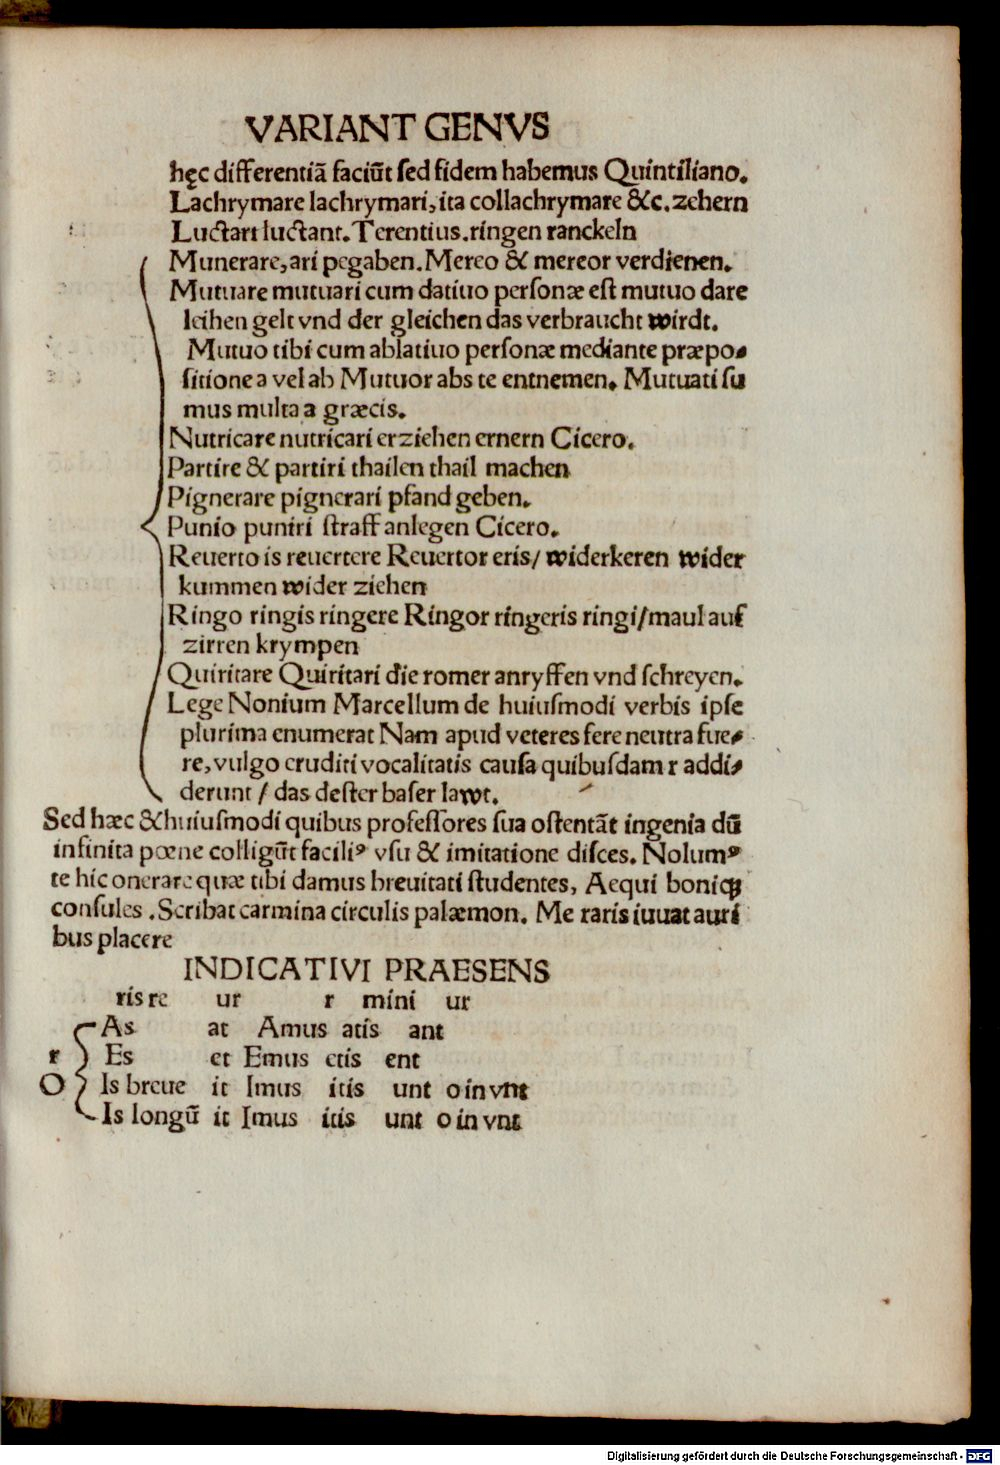 VARIANT GENVS
hęc differentiā faciūt sed fidem habemus Quintiliano.
Lachrymare lachrymari, ita collachrymare &c. zehern
Luctari luctant. Terentius. ringen ranckeln
Munerare, ari pegaben. Mereo & mereor verdienen.
Mutuare mutuari cum datiuo personæ est mutuo dare
leihen gelt vnd der gleichen das verbraucht wirdt.
Mutuo tibi cum ablatiuo personæ mediante præpo-
sitione a vel ab Mutuor abs te entnemen. Mutuati su
mus multa a græcis.
Nutricare nutricari erziehen ernern Cicero.
Partire & partiri thailen thail machen
Pignerare pignerari pfand geben.
Punio puniri straff anlegen Cicero.
Reuerto is reuertere Reuertor eris/ widerkeren wider
kummen wider ziehen
Ringo ringis ringere Ringor ringeris ringi/maul auf
zirren krympen
Quiritare Quiritari die romer anryffen vnd schreyen.
Lege Nonium Marcellum de huiusmodi verbis ipse
plurima enumerat Nam apud veteres fere neutra fue-
re, vulgo eruditi vocalitatis causa quibusdam r addi-
derunt / das dester baser lawt.
Sed hæc & huiusmodi quibus professores sua ostentāt ingenia dū
infinita pœne colligūt faciliꝰ vsu & imitatione disces. Nolumꝰ
te hic onerare quæ tibi damus breuitati studentes, Aequi boniqꝫ
consules. Scribat carmina circulis palæmon. Me raris iuuat auri
bus placere
INDICATIVI PRAESENS
ris re ur r mini ur
As at Amus atis ant
r Es et Emus etis ent
O Is breue it Imus itis unt o in vnt
Is longū it Imus itis unt o in vnt
Digitalisierung gefördert durch die Deutsche Forschungsgemeinschaft - DFG